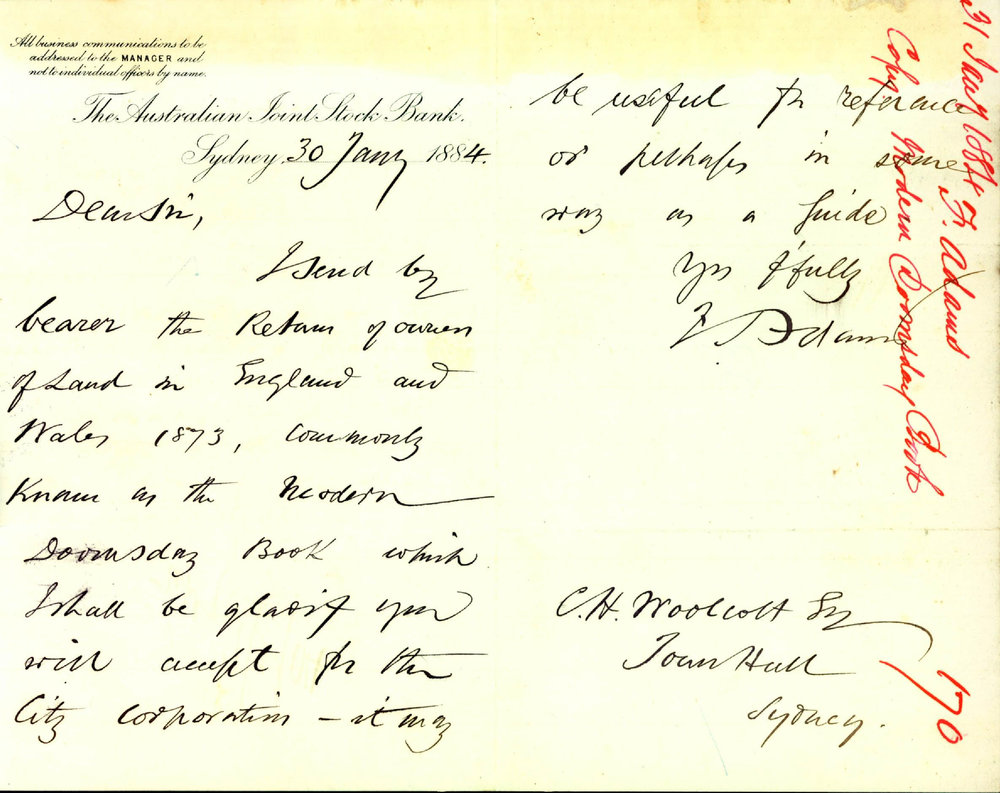 All business communications to be
addressed to the MANAGER and
not to individual officers by name.
The Australian Joint Stock Bank.
Sydney. 30 Jany 1884.
Dear Sir,
I send by
bearer the Return of owners
of Land in England and
Wales 1873, commonly
Known as the Modern
Doomsday Book which
I shall be glad if you
will accept for the
City Corporation – it may
be useful for reference
or perhaps in some
way as a Guide
Yrs ffully
F Adams
C.H. Woolcott Esq
Town Hall
Sydney.
31 Jany 1884 F. Adams
Copy Modern Doomsday Book
170